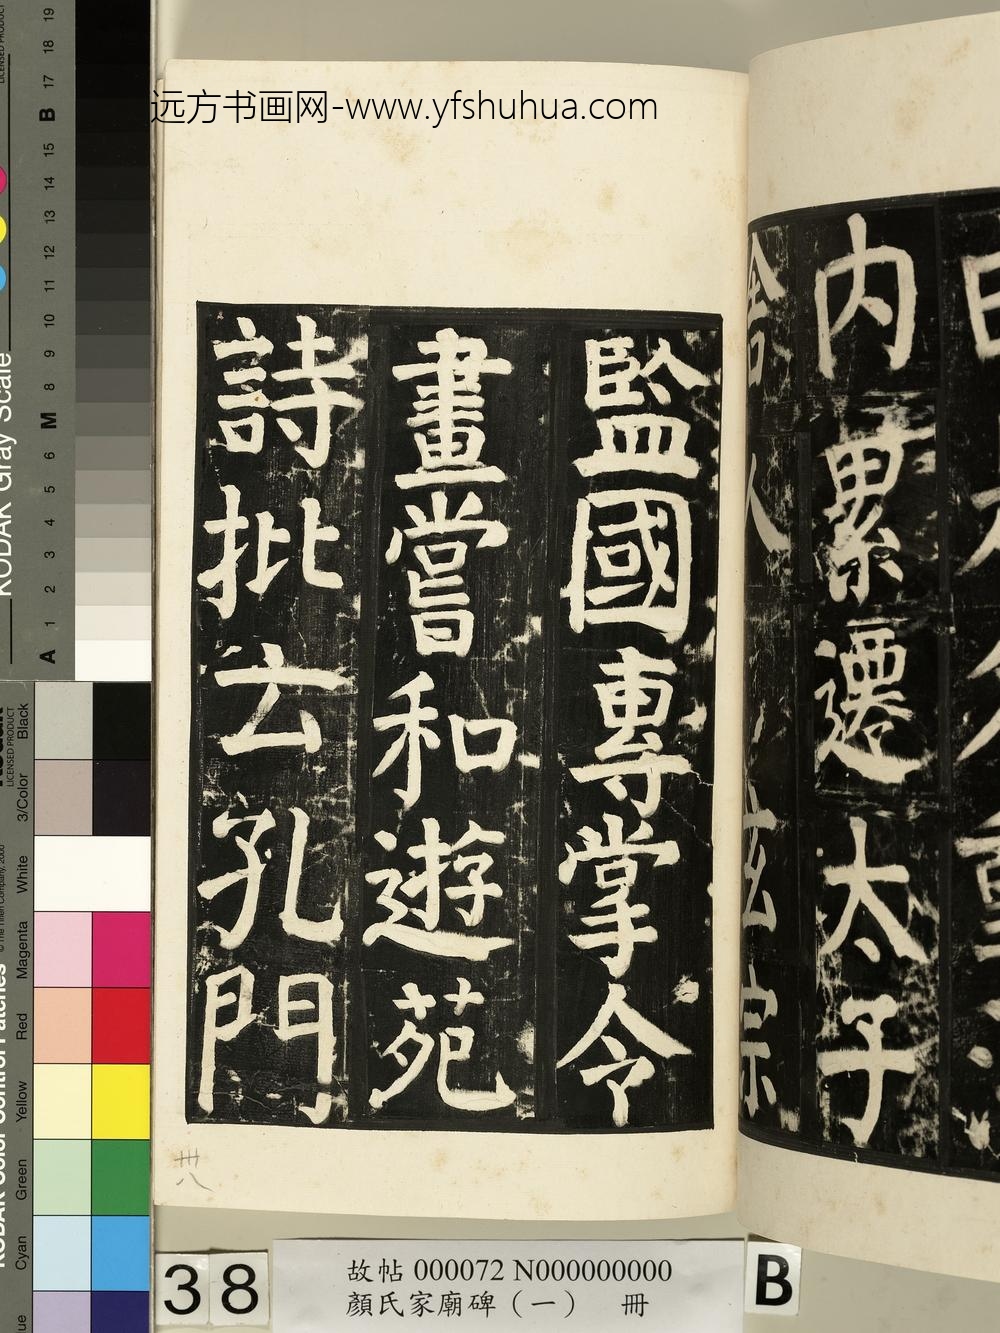 远方书画网-www.yfshuhua.com
内累遷太子
舍人
玄宗
監國專掌令
畫嘗和遊苑
詩批云孔門
卅八
38
故帖 000072 N000000000
顏氏家廟碑（一） 冊
B
KODAK Gray Scale
LICENSED PRODUCT
A 1 2 3 4 5 6 M 8 9 10 11 12 13 14 15 B 17 18 19
KODAK Color Control Patches
LICENSED PRODUCT
© The Tiffen Company, 2000
Cyan Green Yellow Red Magenta White 3/Color Black